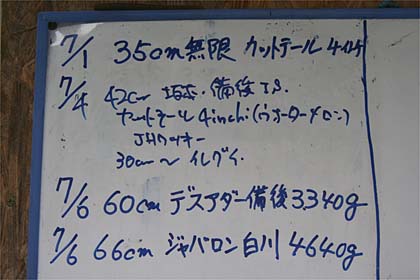 7/1 35cm 無限 カットテール 4インチ
7/4 42cm 坂本・備後 I.S.
カットテール 4inch (ウォーターメロン)
JHワッキー
30cm〜イレグイ.
7/6 60cm デスアダー備後 3,340g
7/6 66cm ジャバロン白川 4640g